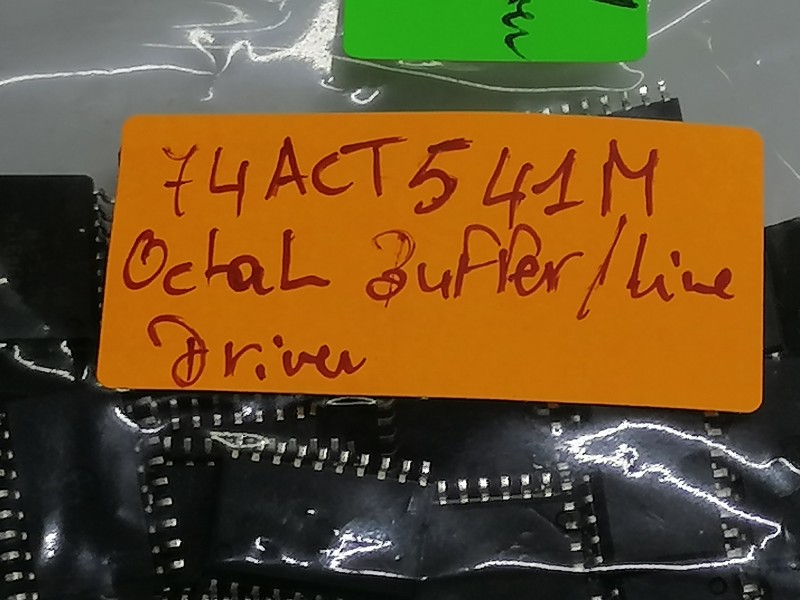 74ACT541M
Octal Buffer/Line
Driver